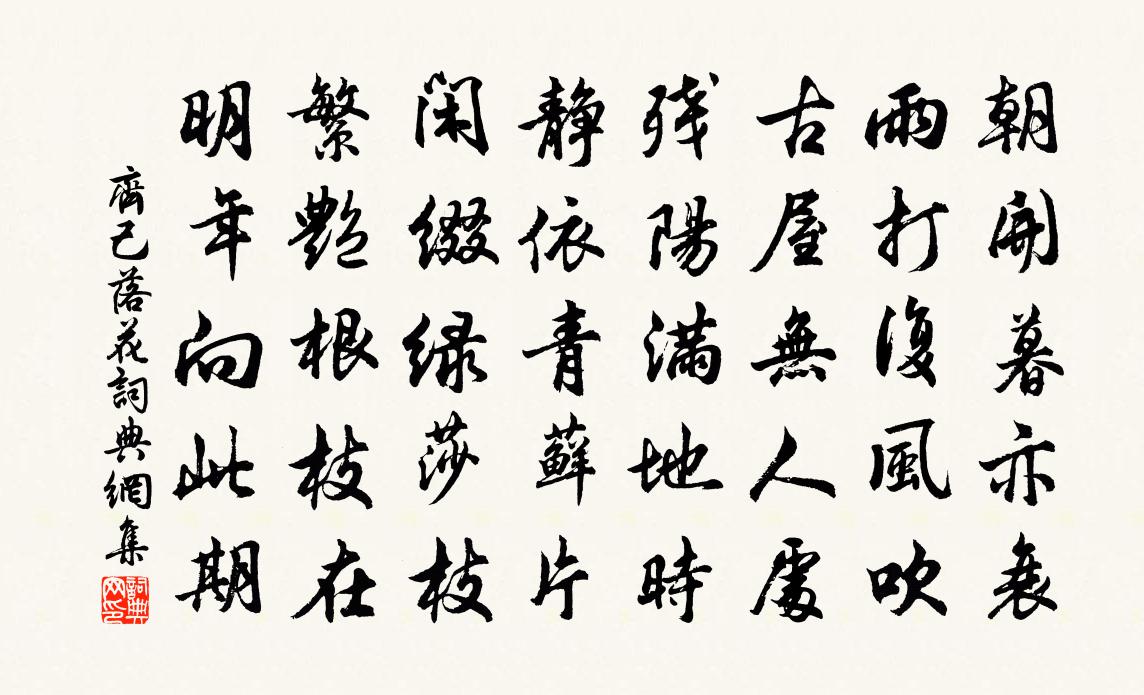 朝開暮亦衰
雨打復風吹
古屋無人處
残陽滿地時
靜依青蘚片
閑綴緑莎枝
繁艷根枝在
明年向此期
齊己落花詞典網集
詞典网印